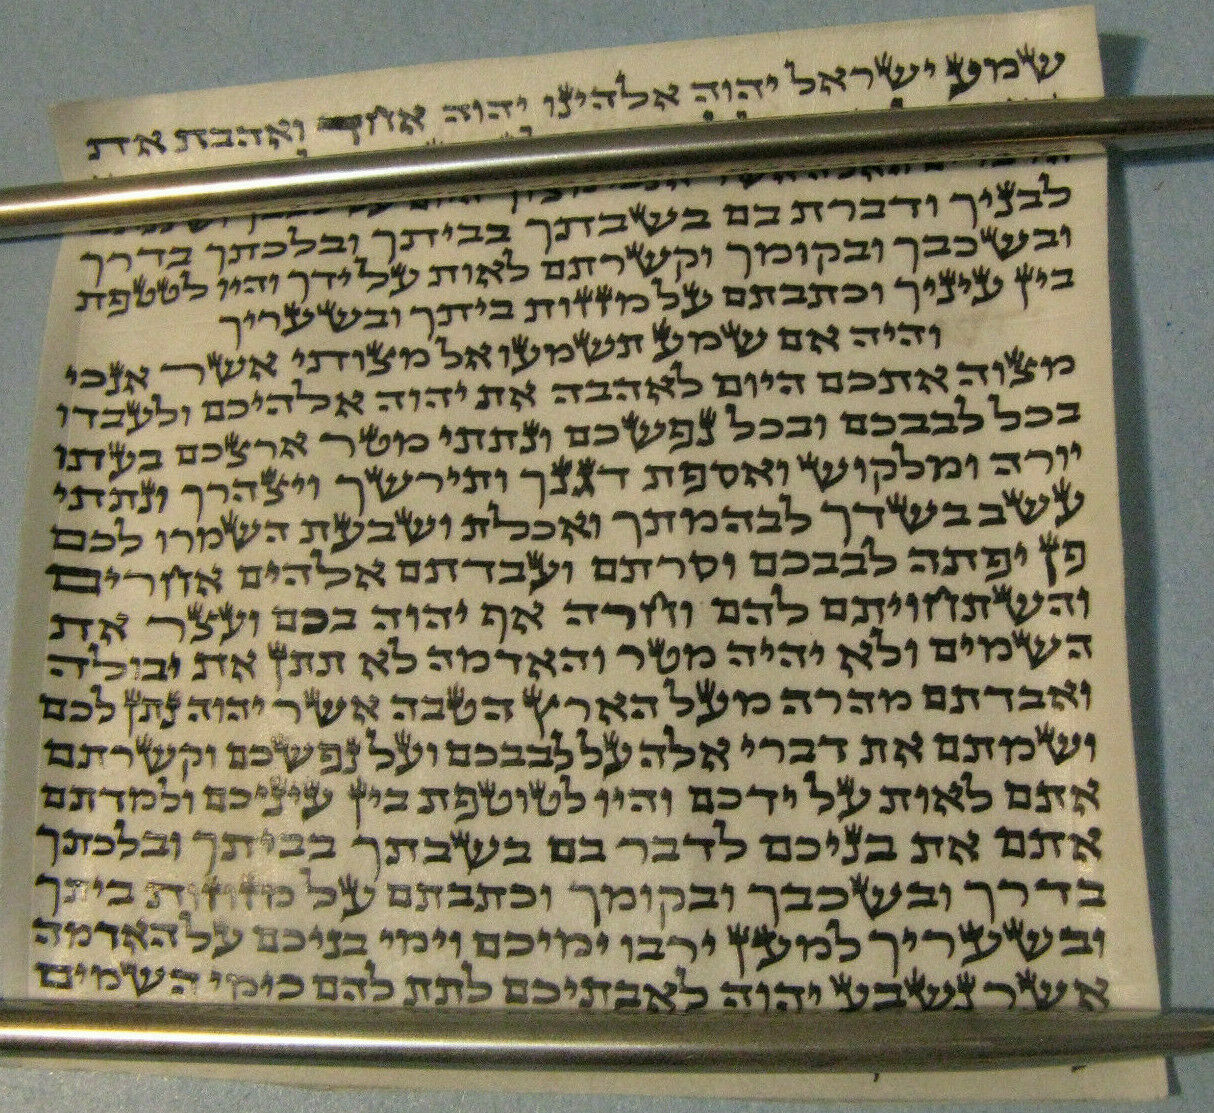 שמע ישראל יהוה אלהינו יהוה אחד ואהבת את
היום על לבבך
לבניך ודברת בם בשבתך בביתך ובלכתך בדרך
ובשכבך ובקומך וקשרתם לאות על ידך והיו לטטפת
בין עיניך וכתבתם על מזזות ביתך ובשעריך
והיה אם שמע תשמעו אל מצותי אשר אנכי
מצוה אתכם היום לאהבה את יהוה אלהיכם ולעבדו
בכל לבבכם ובכל נפשכם ונתתי מטר ארצכם בעתו
יורה ומלקוש ואספת דגנך ותירשך ויצהרך ונתתי
עשב בשדך לבהמתך ואכלת ושבעת השמרו לכם
פן יפתה לבבכם וסרתם ועבדתם אלהים אחרים
והשתחויתם להם וחרה אף יהוה בכם ועצר את
השמים ולא יהיה מטר והאדמה לא תתן את יבולה
ואבדתם מהרה מעל הארץ הטבה אשר יהוה נתן לכם
ושמתם את דברי אלה על לבבכם ועל נפשכם וקשרתם
אתם לאות על ידכם והיו לטוטפת בין עיניכם ולמדתם
אתם את בניכם לדבר בם בשבתך בביתך ובלכתך
בדרך ובשכבך ובקומך וכתבתם על מזוזות ביתך
ובשעריך למען ירבו ימיכם וימי בניכם על האדמה
אשר נשבע יהוה לאבתיכם לתת להם כימי השמים